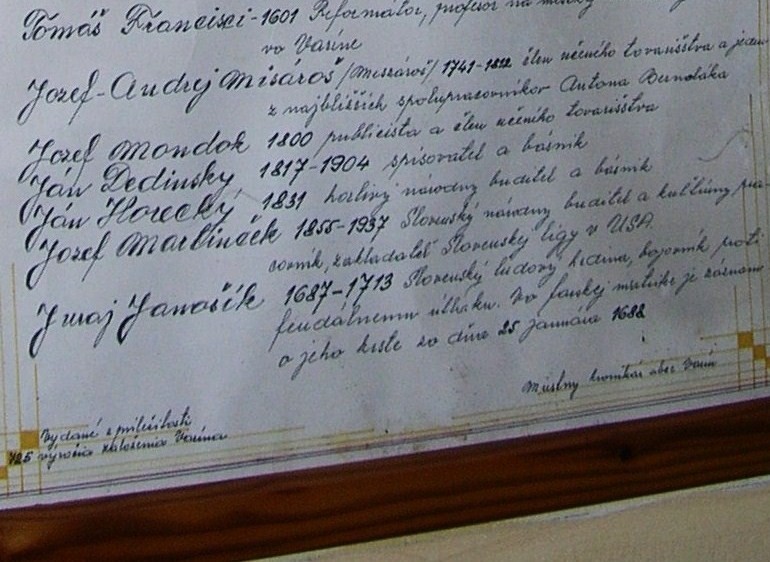 Tomáš Francisci - 1601 Reformátor, profesor na
vo Varíne
Jozef-Andrej Misároš /Meszároš/ 1741-1812 člen učeného tovarišstva a jeden
z najbližších spolupracovníkov Antona Bernoláka
Jozef Mondok 1800 publicista a člen učeního tovarišstva
Ján Dedinský, 1817-1904 spisovateľ a básnik
Ján Horecký, 1831 horlivý národný buditeľ a básnik
Jozef Martinček 1855-1937 Slovenský národný buditeľ a kultúrny pra-
covník, zakladateľ Slovenskej ligy v USA.
Juraj Janošík 1687-1713 Slovenský ľudový hrdina, bojovník proti
feudálnemu útlaku. Vo farskej matrike je záznam
o jeho krste zo dňa 25 januára 1688
Miestny kronikár obce Varín
Vydané z príležitosti
725 výročia založenia Varína